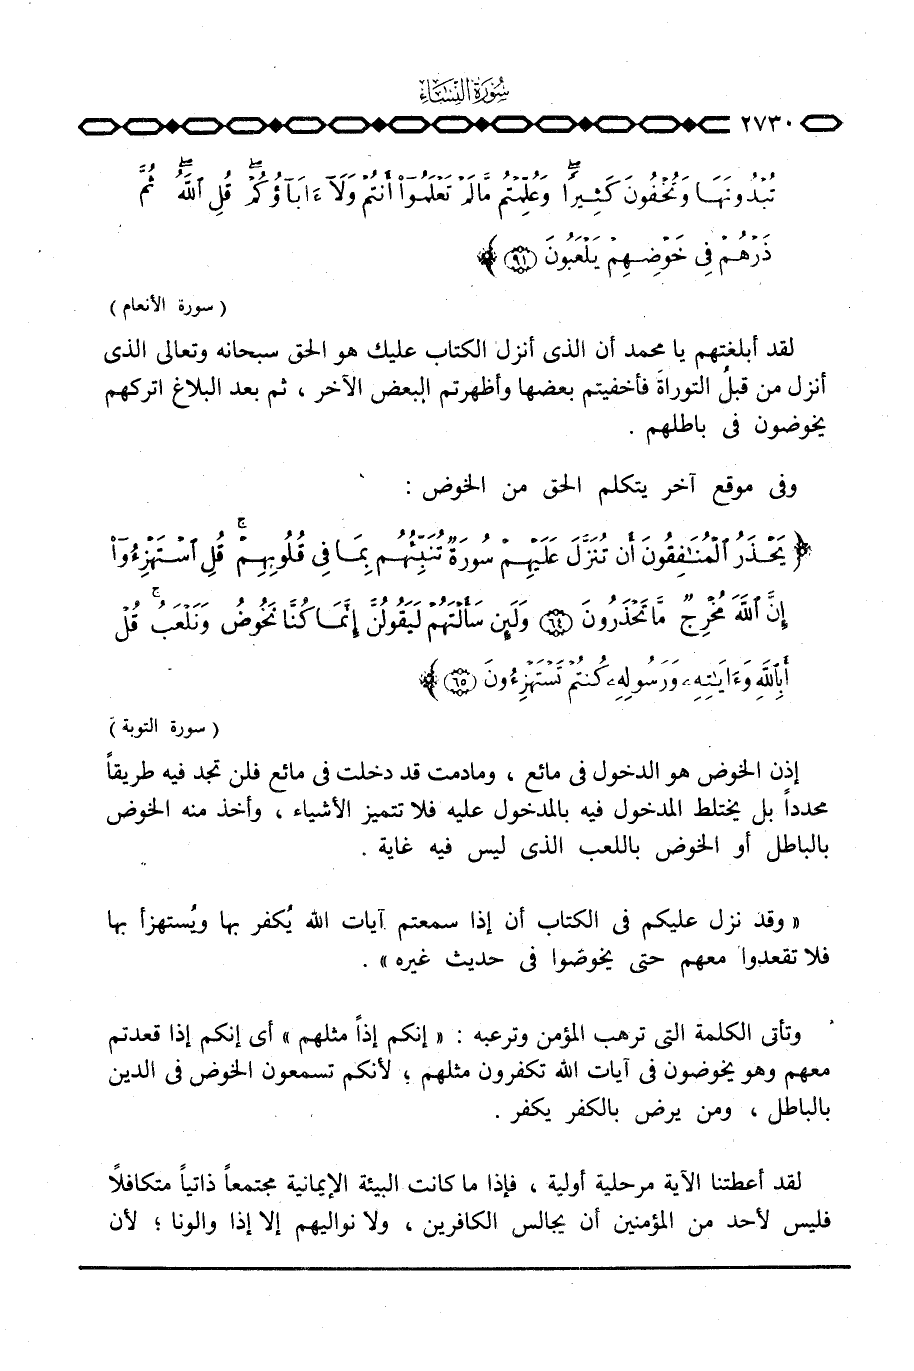 سُورَةُ النِّسَاء
٢٧٣٠
تُبْدُونَهَا وَتُخْفُونَ كَثِيرًا ۖ وَعُلِّمْتُم مَّا لَمْ تَعْلَمُوٓا۟ أَنتُمْ وَلَآ ءَابَآؤُكُمْ ۖ قُلِ ٱللَّهُ ۖ ثُمَّ
ذَرْهُمْ فِى خَوْضِهِمْ يَلْعَبُونَ (٩١) ﴾
( سورة الأنعام )
لقد أبلغتهم يا محمد أن الذى أنزل الكتاب عليك هو الحق سبحانه وتعالى الذى
أنزل من قبلُ التوراةَ فأخفيتم بعضها وأظهرتم البعض الآخر ، ثم بعد البلاغ اتركهم
يخوضون فى باطلهم .
وفى موقع آخر يتكلم الحق من الخوض :
﴿ يَحْذَرُ ٱلْمُنَٰفِقُونَ أَن تُنَزَّلَ عَلَيْهِمْ سُورَةٌ تُنَبِّئُهُم بِمَا فِى قُلُوبِهِمْ ۚ قُلِ ٱسْتَهْزِءُوٓا۟
إِنَّ ٱللَّهَ مُخْرِجٌ مَّا تَحْذَرُونَ (٦٤) وَلَئِن سَأَلْتَهُمْ لَيَقُولُنَّ إِنَّمَا كُنَّا نَخُوضُ وَنَلْعَبُ ۚ قُلْ
أَبِٱللَّهِ وَءَايَٰتِهِۦ وَرَسُولِهِۦ كُنتُمْ تَسْتَهْزِءُونَ (٦٥) ﴾
( سورة التوبة )
إذن الخوض هو الدخول فى مائع ، ومادمت قد دخلت فى مائع فلن تجد فيه طريقاً
محدداً بل يختلط المدخول فيه بالمدخول عليه فلا تتميز الأشياء ، وأخذ منه الخوض
بالباطل أو الخوض باللعب الذى ليس فيه غاية .
« وقد نزل عليكم فى الكتاب أن إذا سمعتم آيات الله يُكفر بها ويُستهزأ بها
فلا تقعدوا معهم حتى يخوضوا فى حديث غيره » .
وتأتى الكلمة التى ترهب المؤمن وترعبه : « إنكم إذاً مثلهم » أى إنكم إذا قعدتم
معهم وهو يخوضون فى آيات الله تكفرون مثلهم ؛ لأنكم تسمعون الخوض فى الدين
بالباطل ، ومن يرض بالكفر يكفر .
لقد أعطتنا الآية مرحلية أولية ، فإذا ما كانت البيئة الإيمانية مجتمعاً ذاتياً متكافلاً
فليس لأحد من المؤمنين أن يجالس الكافرين ، ولا نواليهم إلا إذا والونا ؛ لأن